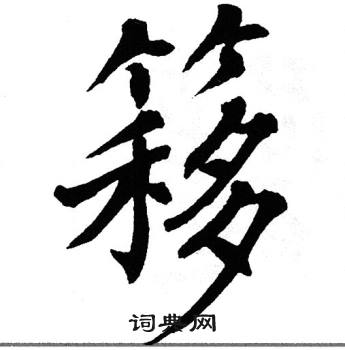 簃
词典网